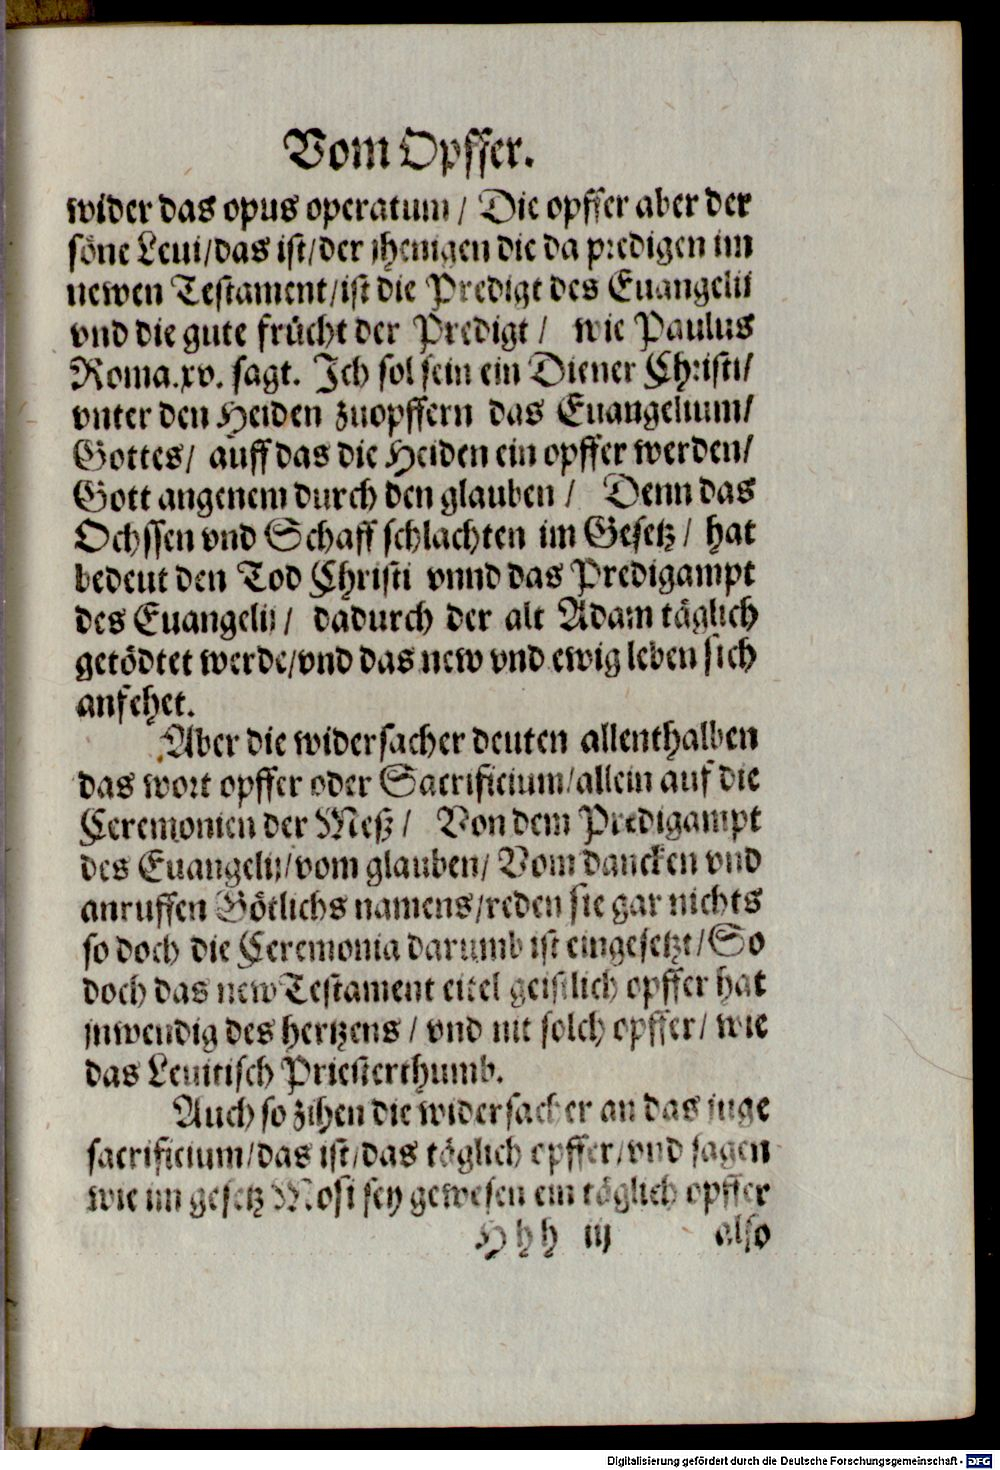 Vom Opffer.
wider das opus operatum / Die opffer aber der
söne Leui/das ist/der jhenigen die da predigen im
newen Testament/ist die Predigt des Euangelii
vnd die gute frücht der Predigt / wie Paulus
Roma.xv. sagt. Ich sol sein ein Diener Christi/
vnter den Heiden zuopffern das Euangelium/
Gottes/ auff das die Heiden ein opffer werden/
Gott angenem durch den glauben / Denn das
Ochssen vnd Schaff schlachten im Gesetz / hat
bedeut den Tod Christi vnnd das Predigampt
des Euangelij / dadurch der alt Adam täglich
getödtet werde/vnd das new vnd ewig leben sich
anfehet.
Aber die widersacher deuten allenthalben
das wort opffer oder Sacrificium/allein auf die
Ceremonien der Meß / Von dem Predigampt
des Euangelij/vom glauben/ Vom dancken vnd
anruffen Götlichs namens/reden sie gar nichts
so doch die Ceremonia darumb ist eingesetzt/So
doch das new Testament eitel geistlich opffer hat
jnwendig des hertzens / vnd nit solch opffer/ wie
das Leuitisch Priesterthumb.
Auch so zihen die widersacher an das juge
sacrificium/das ist/das täglich opffer/vnd sagen
wie im gesetz Mosi sey gewesen ein täglich opffer
Hhh iij also
Digitalisierung gefördert durch die Deutsche Forschungsgemeinschaft - DFG